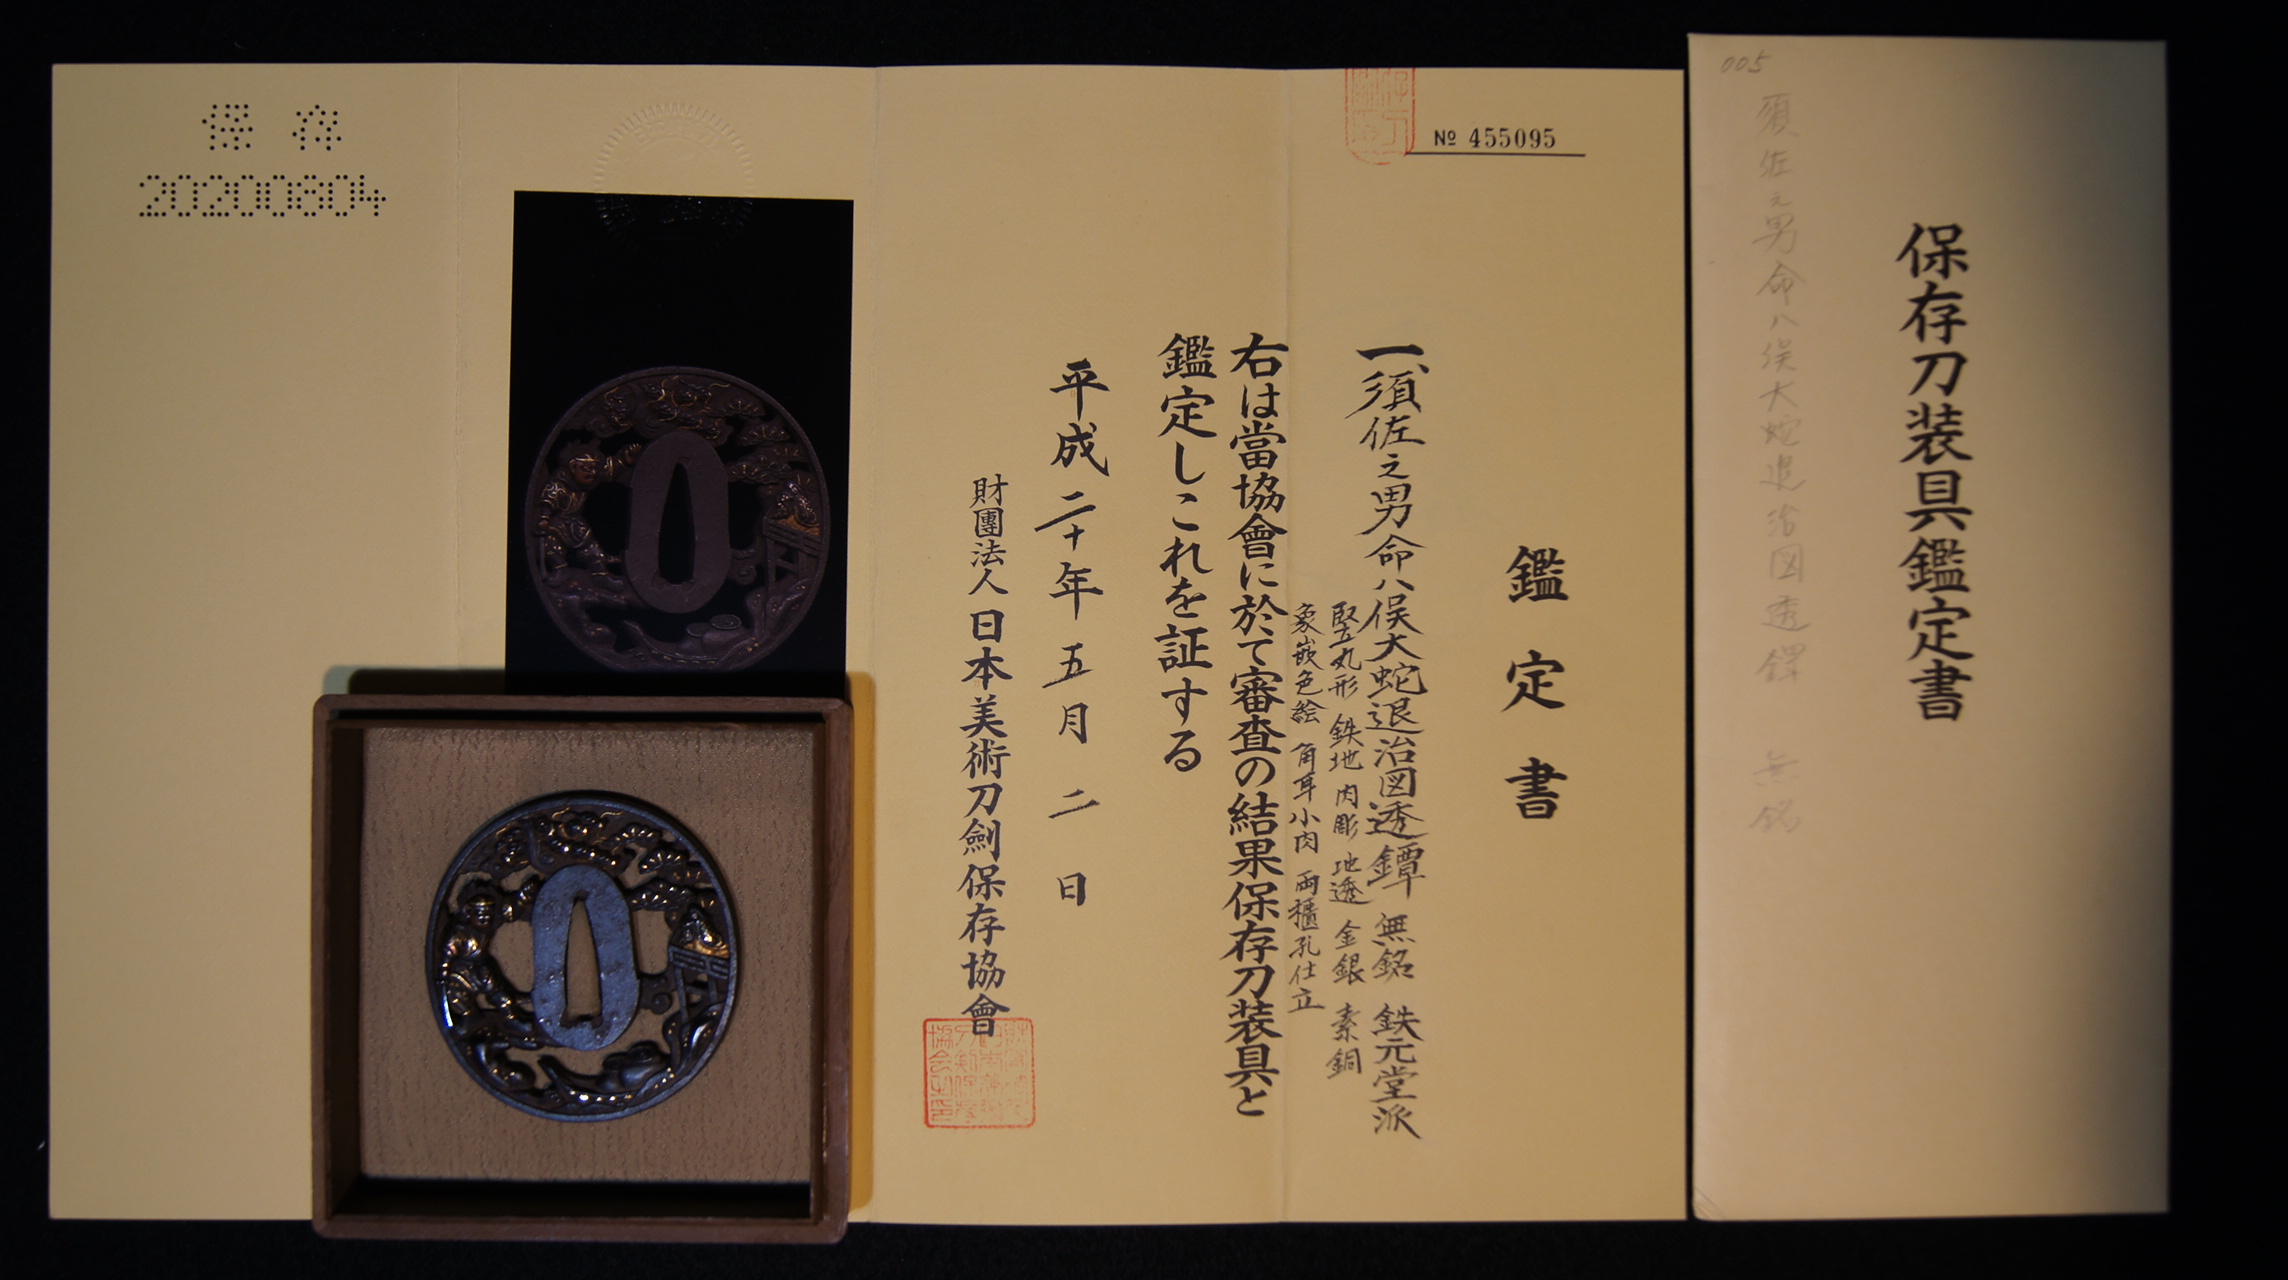 保存刀装具鑑定書
005
須佐之男命八俣大蛇退治図透鐔 無銘
No 455095
鑑定書
一、須佐之男命八俣大蛇退治図透鐔 無銘 鉄元堂派
竪丸形 鉄地 肉彫 地透 金銀 素銅
象嵌色絵 角耳小肉 両櫃孔仕立
右は當協會に於て審査の結果保存刀装具と
鑑定しこれを証する
平成二十年五月二日
財團法人 日本美術刀劍保存協會
保存
20200804